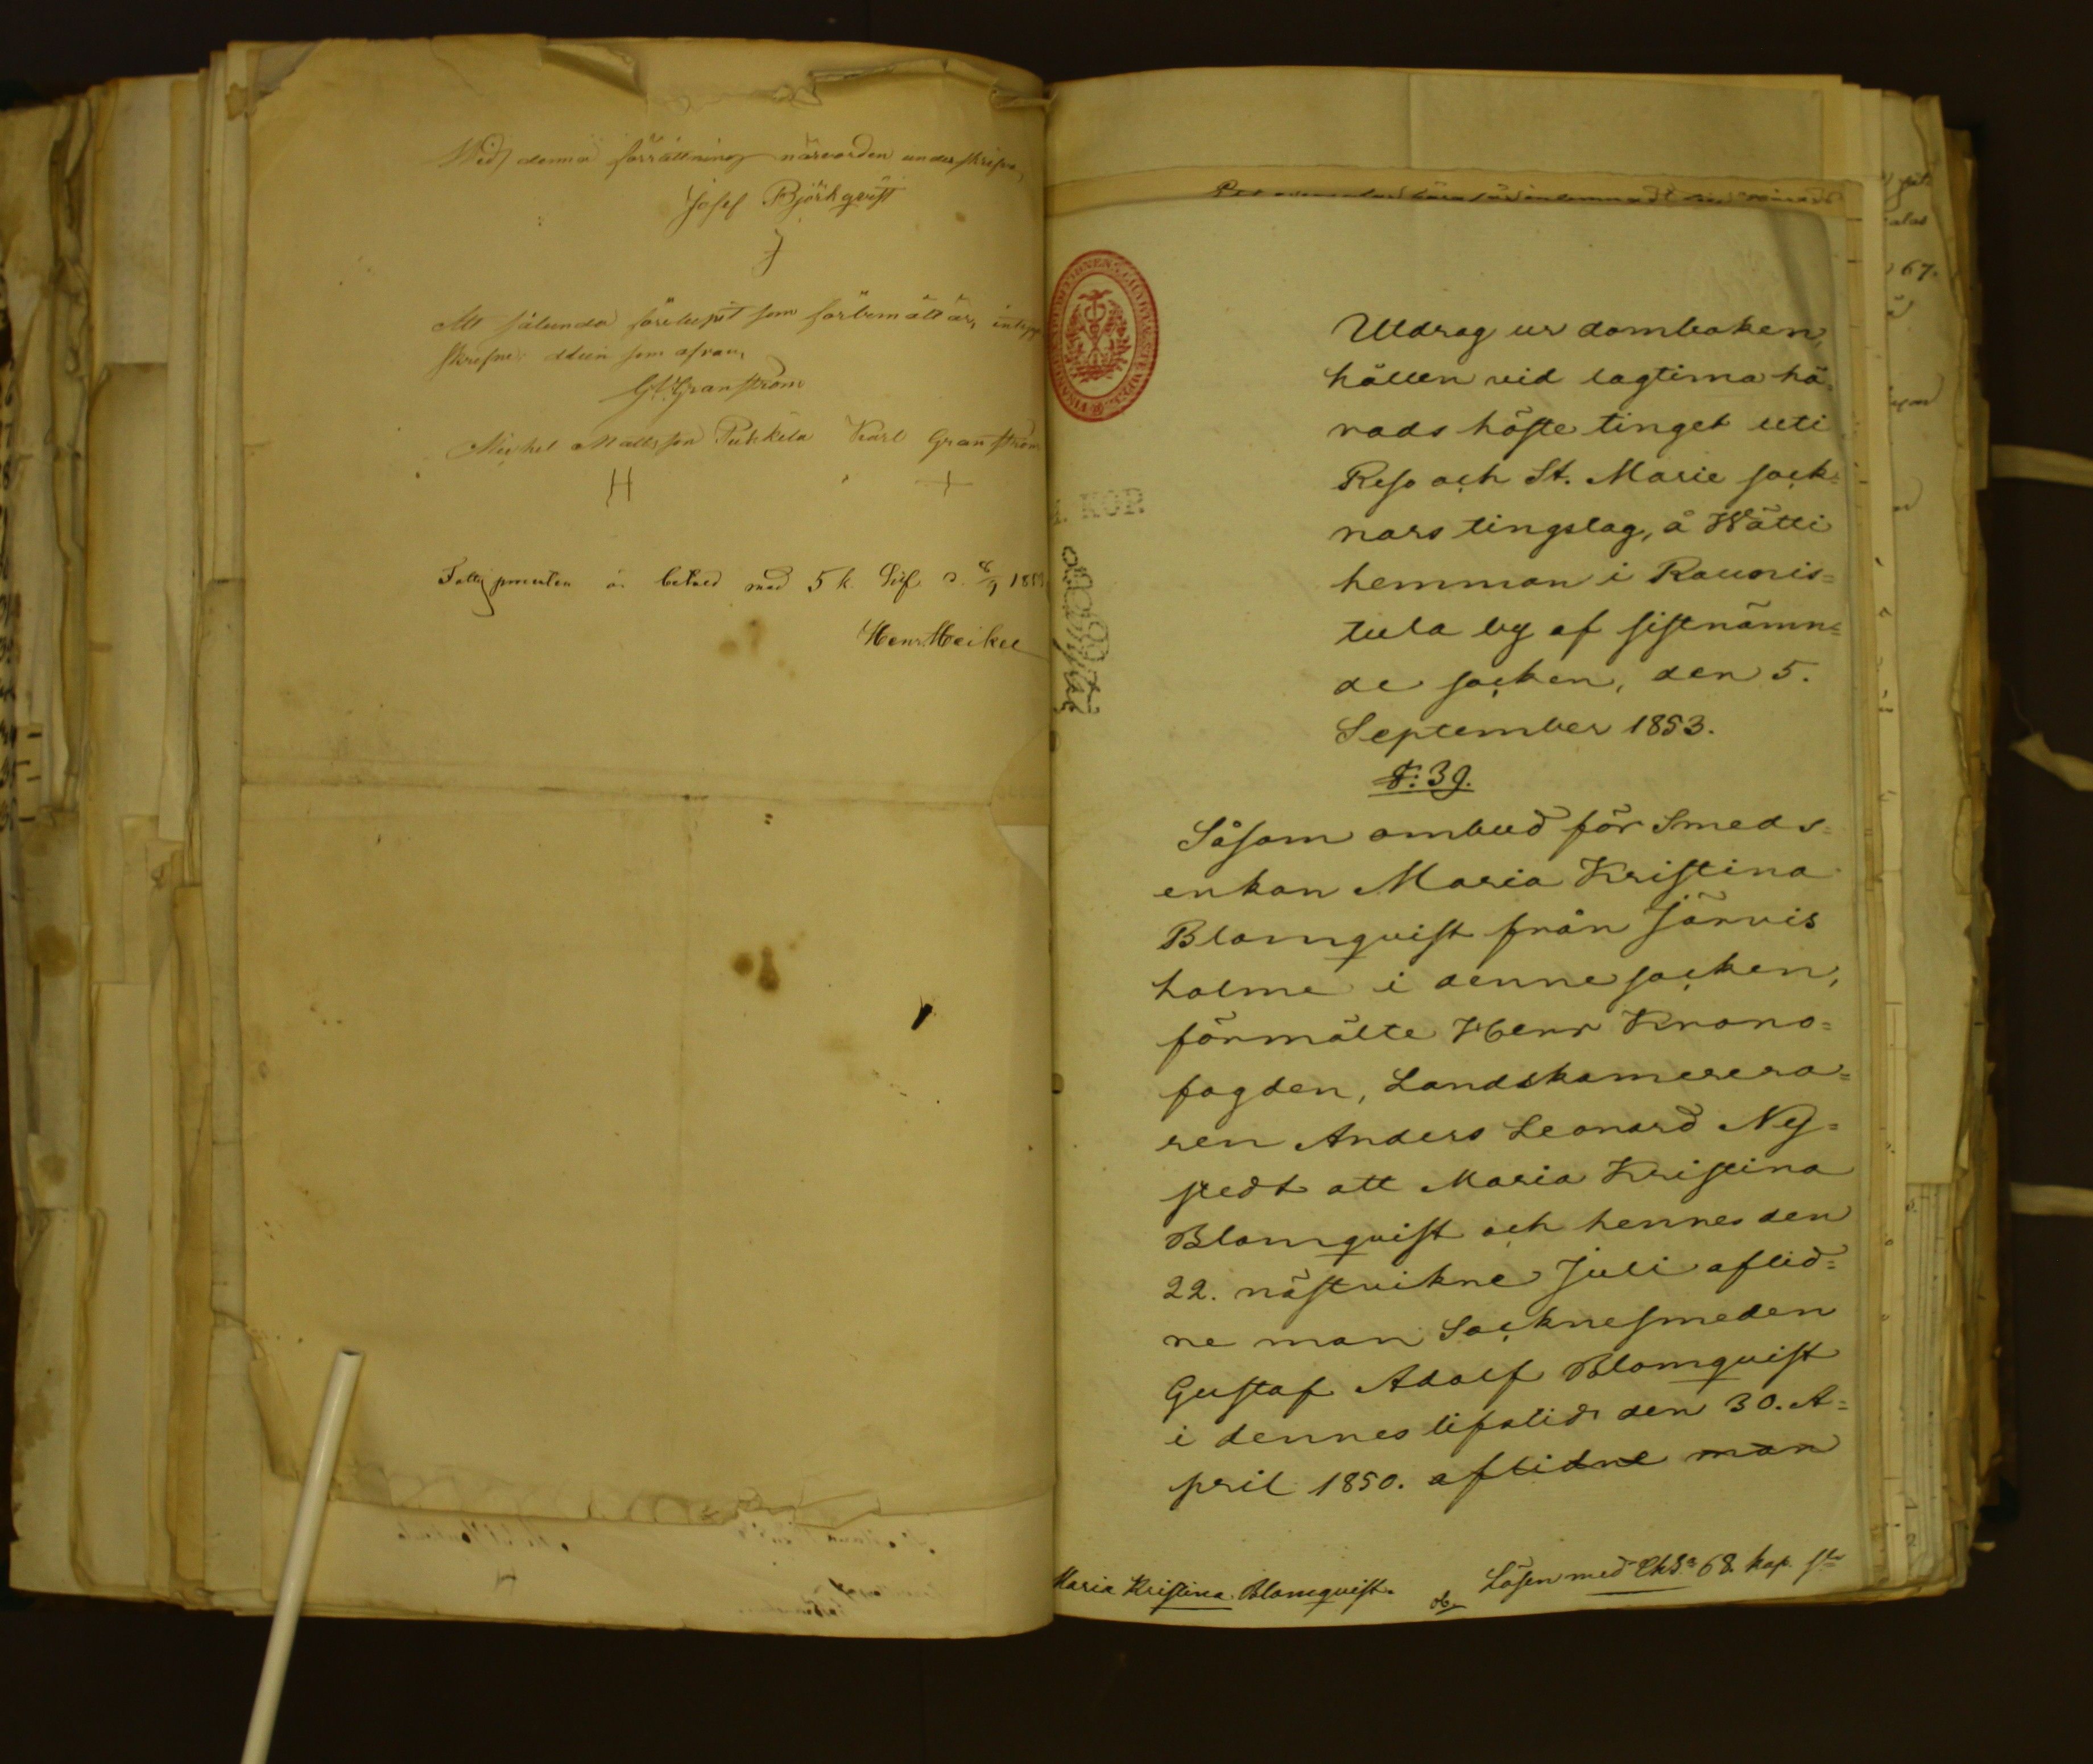 Wid denna förrättning närvarden underskrifva,
Josef Björkqvist
Att sålunda förelupit som förbemält är, intyga
G. Granström
Michel Mattsson Puhkila Karl Granström
Fattigprocenten är betald med 5 k. Silf. d. 8/9 1853
Henr. Heikel
Utdrag ur domboken,
hållen vid lagtima hä=
rads höste tinget uti
Reso och St. Marie sock=
nars tingslag, å Wätti
hemman i Raunis=
tula by af sistnämn=
de socken, den 5.
September 1853.
§: 39.
Såsom ombud för Smeds=
enkan Maria Kristina
Blomqvist från Järvis
holme i denne socken,
förmälte Herr Krono=
fogden, Landskamerera=
ren Anders Leonard Ny=
stedt att Maria Kristina
Blomqvist och hennes den
22. nästvikne Juli aflid=
ne man Socknesmeden
Gustaf Adolf Blomqvist
i dennes lifstid den 30. A=
pril 1850. aflidne man
Maria Kristina Blomqvist. Lösen med Chs. 68. kop. sr